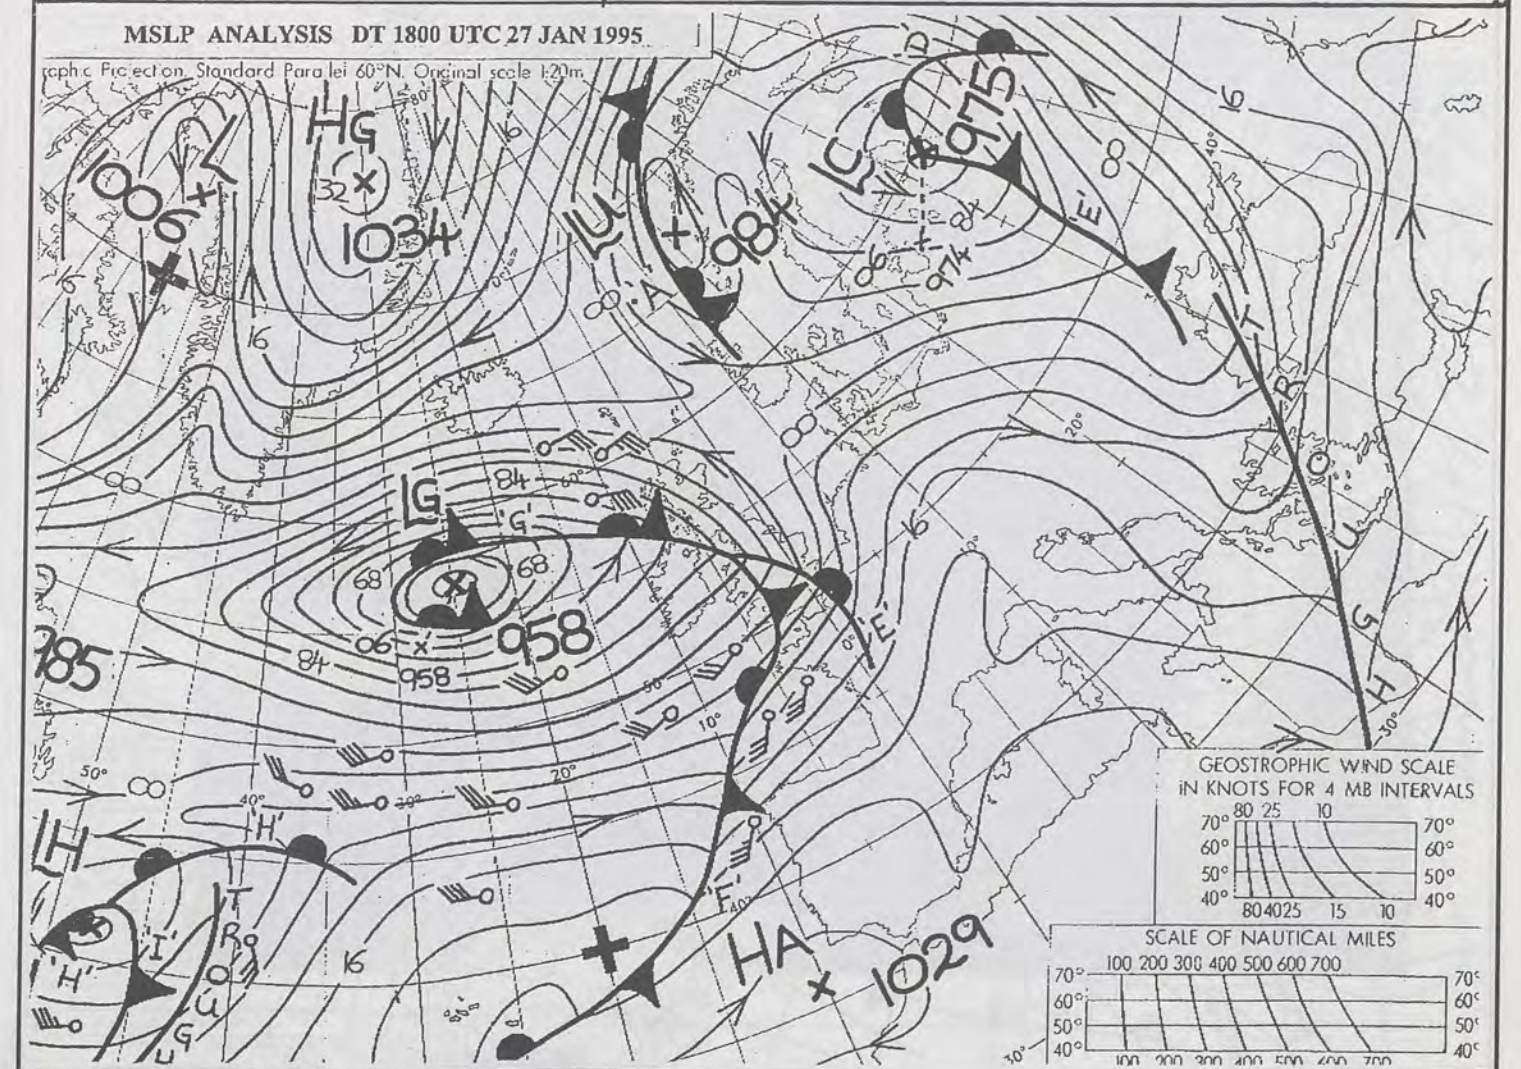 MSLP ANALYSIS DT 1800 UTC 27 JAN 1995
raphic Projection. Standard Parallel 60°N. Original scale 1:20m
80°
L
1006
HG
32
1034
16
16
16
LU
984
'A'
08
'D'
LC
975
84
06
974
'E'
08
16
40°
T
R
O
U
G
H
20°
30°
08
08
16
LG
84
60°
'G'
68
68
958
06
958
84
985
50
10°
0°
'E'
50°
08
40°
30°
20°
LH
'H'
'I'
'H'
T
R
O
U
G
H
16
'F'
40°
HA
1029
GEOSTROPHIC WIND SCALE
IN KNOTS FOR 4 MB INTERVALS
80 25 10
70° 70°
60° 60°
50° 50°
40° 40°
80 40 25 15 10
SCALE OF NAUTICAL MILES
100 200 300 400 500 600 700
70° 70°
60° 60°
50° 50°
40° 40°
100 200 300 400 500 600 700
30°